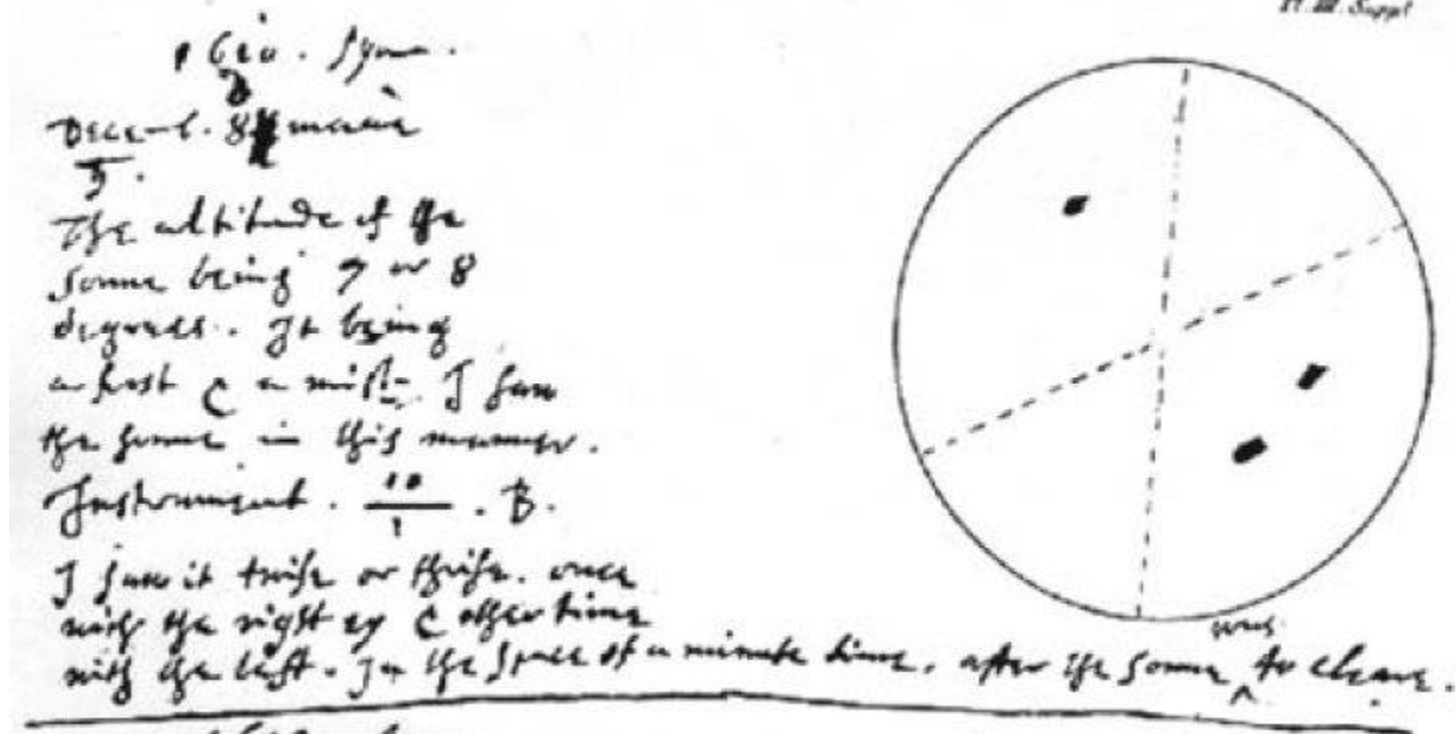 1610. Syon.
☽
Decemb. 8 mane
♄.
The altitude of the
sonne being 7 or 8
degrees. It being
a frost & a mist. I saw
the sonne in this manner.
Instrument. 10/1 . B.
I saw it twise or thrise. once
with the right ey & other time
with the left. In the space of a minute time, after the sonne was to cleare.